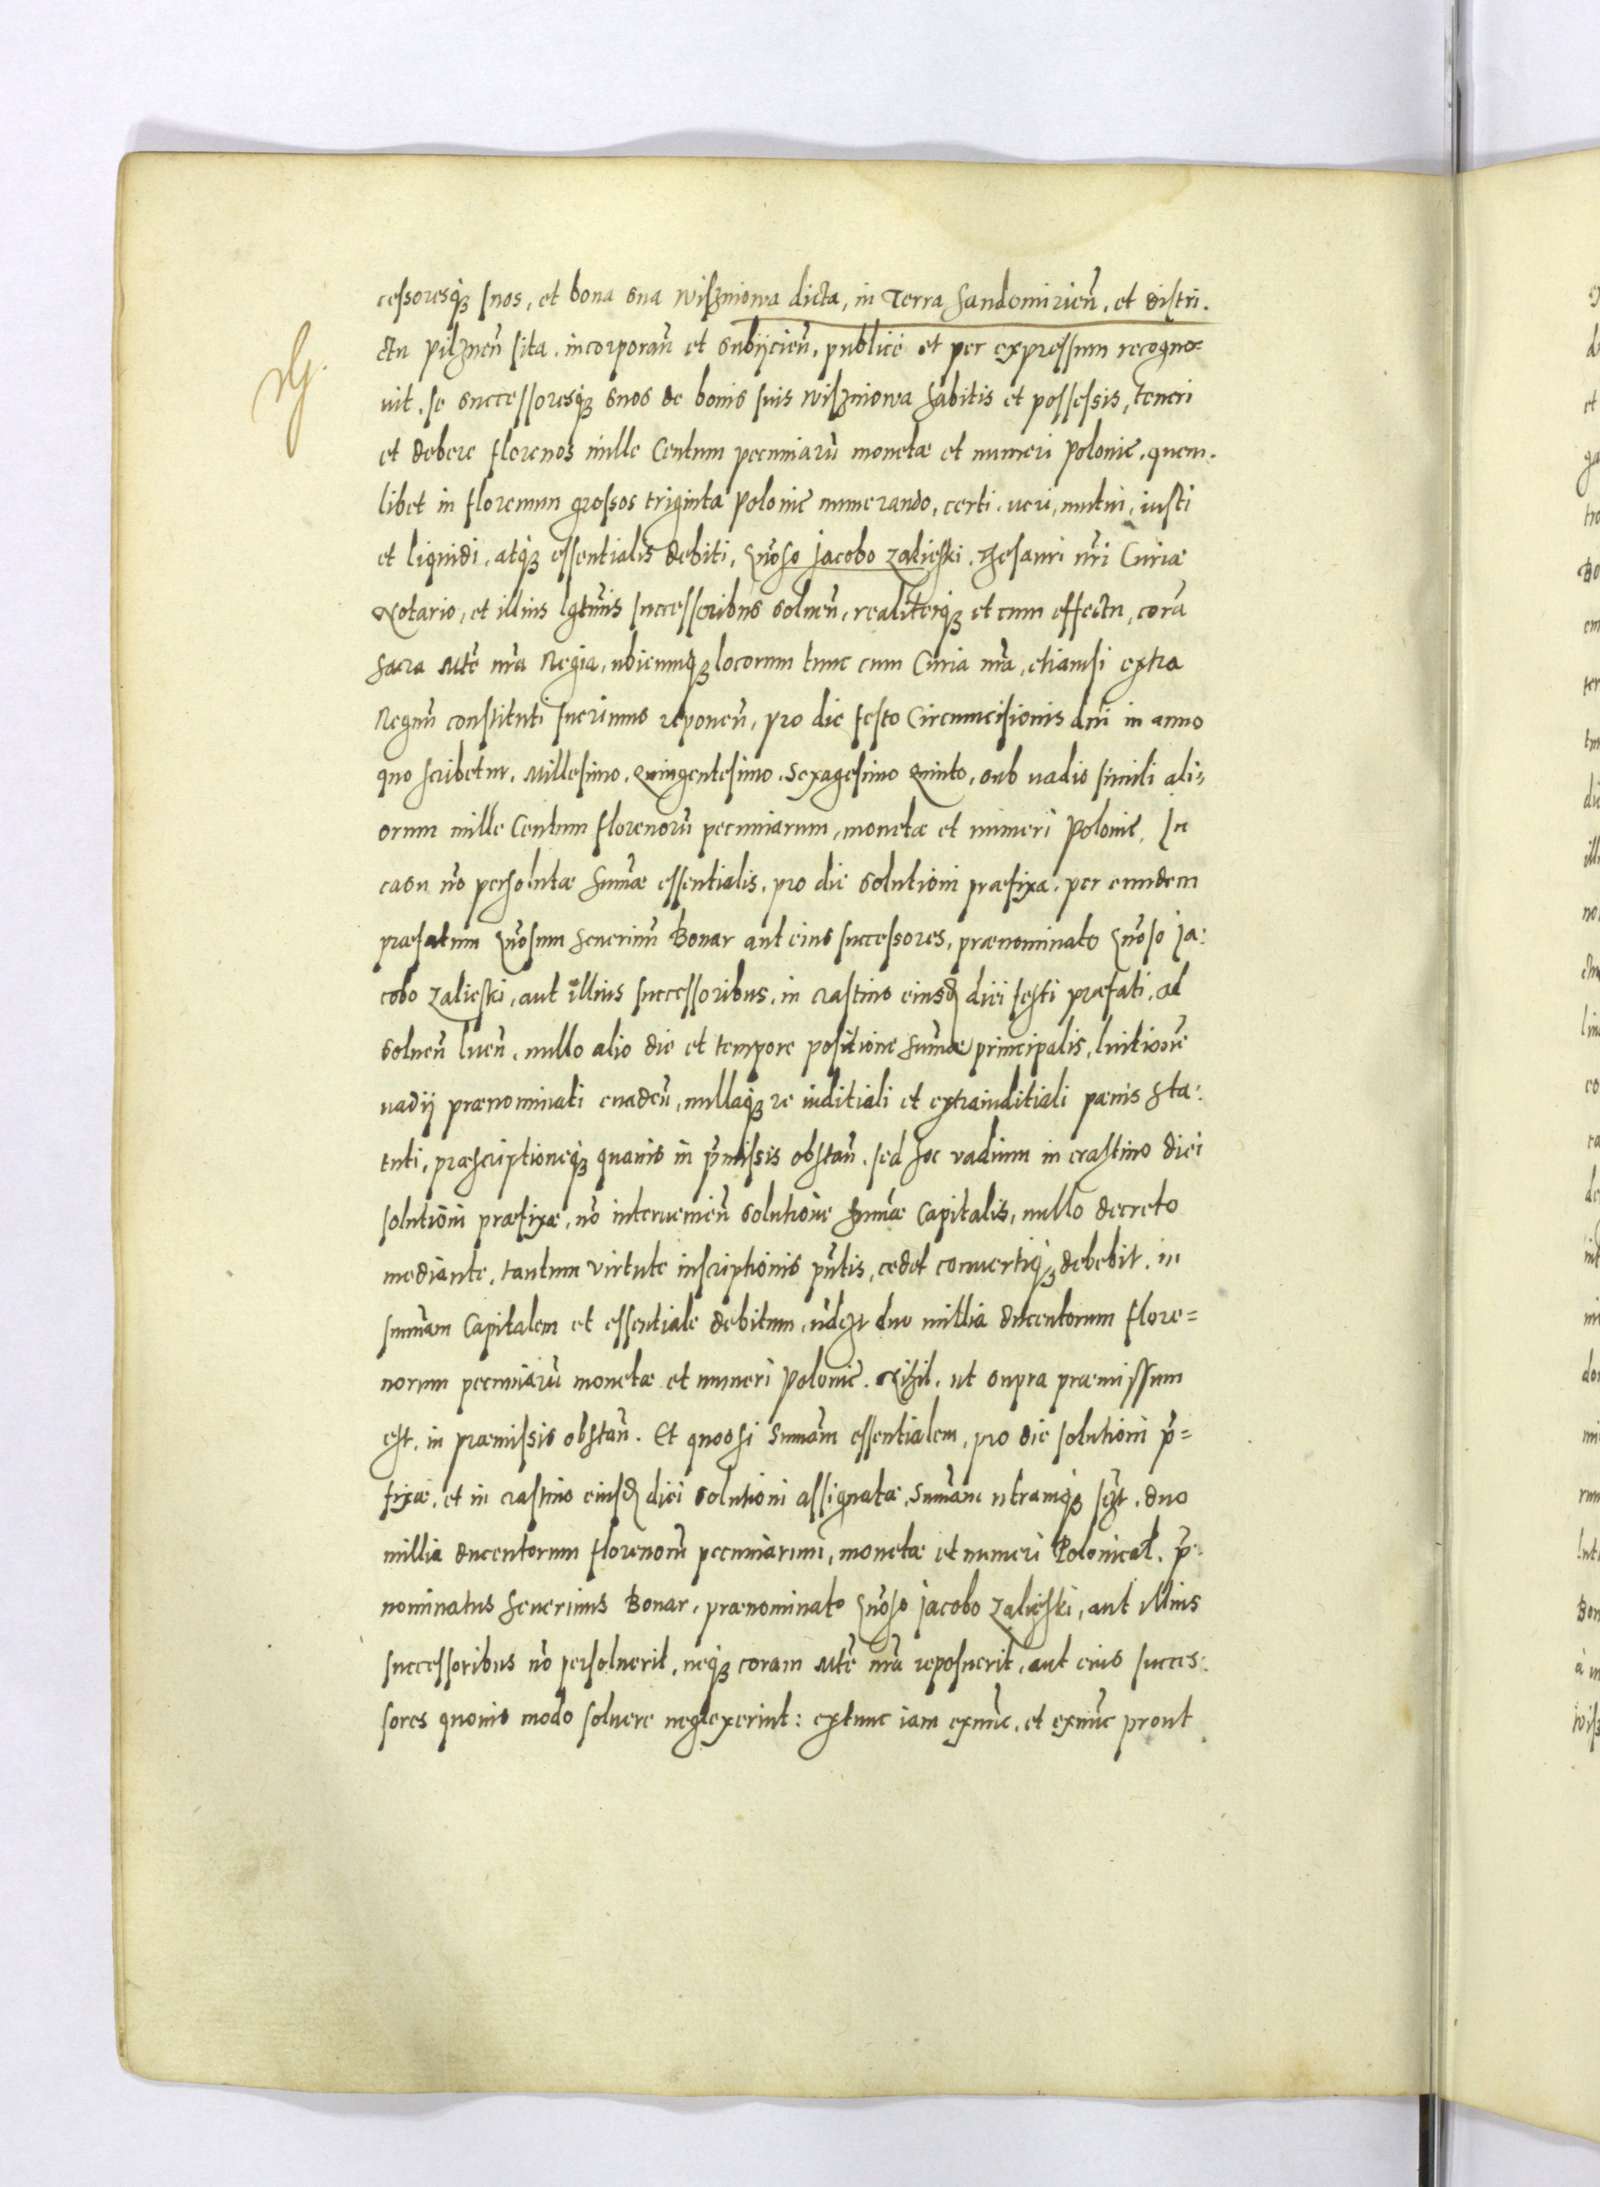 cessoresq3 suos, et bona sua Wiszniowa dicta, in Terra Sandomirień, et distri.
ctu Pilzneń sita, incorporań et subijcień, publice et per expressum recogno=
uit, se successoresq3 suos de bonis suis Wiszniowa habitis et possessis, teneri
et debere florenos mille Centum pecuniarū monetæ et numeri Polonic̄, quem.
libet in florenum grossos triginta Polonic̄ numerando, certi, ueri, mutui, iusti
et liquidi, atq3 essentialis debiti, Gn̄oso Jacobo Zalieski, Thesauri nr̄i Curiæ
Notario, et illius lgtm̄is successoribus soluen̄, realiterq3 et cum effectu, corā
Sacra Mt̄e nr̄a Regia, ubicumq3 locorum tunc cum Curia nr̄a, etiamsi extra
Regnū constituti fuerimus reponen̄, pro die festo Circumcisionis dn̄i in anno
quo scribetur, Millesimo, Quingentesimo, Sexagesimo Quinto, sub uadio simili ali=
orum mille Centum florenorū pecuniarum, monetæ et numeri Polonic̄. In
casu nō persolutæ sum̄æ essentialis, pro die solutioni præfixa, per eundem
præfatum Gn̄osum Seuerinū Bonar aut eius successores, prænominato Gn̄oso Ja:
cobo Zalieski, aut illius successoribus, in crastino eiusd diei festi præfati, ad
soluen̄ luen̄, nullo alio die et tempore positione sum̄æ principalis, luitionē
uadij prænominati euaden̄, nullaq3 re iuditiali et extraiuditiali pænis sta:
tuti, præscriptioneq3 quauis in p̄missis obstan̄, sed hoc vadium in crastino diei
solutioni præfixæ, nō interuenien̄ solutione sum̄æ Capitalis, nullo decreto
mediante, tantum virtute inscriptionis pn̄tis, cedet conuertiq3 debebit, in
sum̄am Capitalem et essentiale debitum, uidezt duo millia ducentorum flore=
norum pecuniarū monetæ et numeri Polonic̄. Nihil, ut supra præmissum
est, in præmissis obstan̄. Et quodsi Sum̄am essentialem, pro die solutioni p̄=
fixæ, et in crastino eiusd diei solutioni assignatæ, Sum̄am utramq3 sczt, duo
millia ducentorum florenorū pecuniarum, monetæ et numeri Polonical, p̄:
nominatus Seuerinus Bonar, prænominato Gn̄oso Jacobo Zalieski, aut illius
successoribus nō persoluerit, neq3 coram Mt̄e nr̄a reposuerit, aut eius succes:
sores quouis modo soluere neglexerint: extunc iam exnūc, et exnūc prout